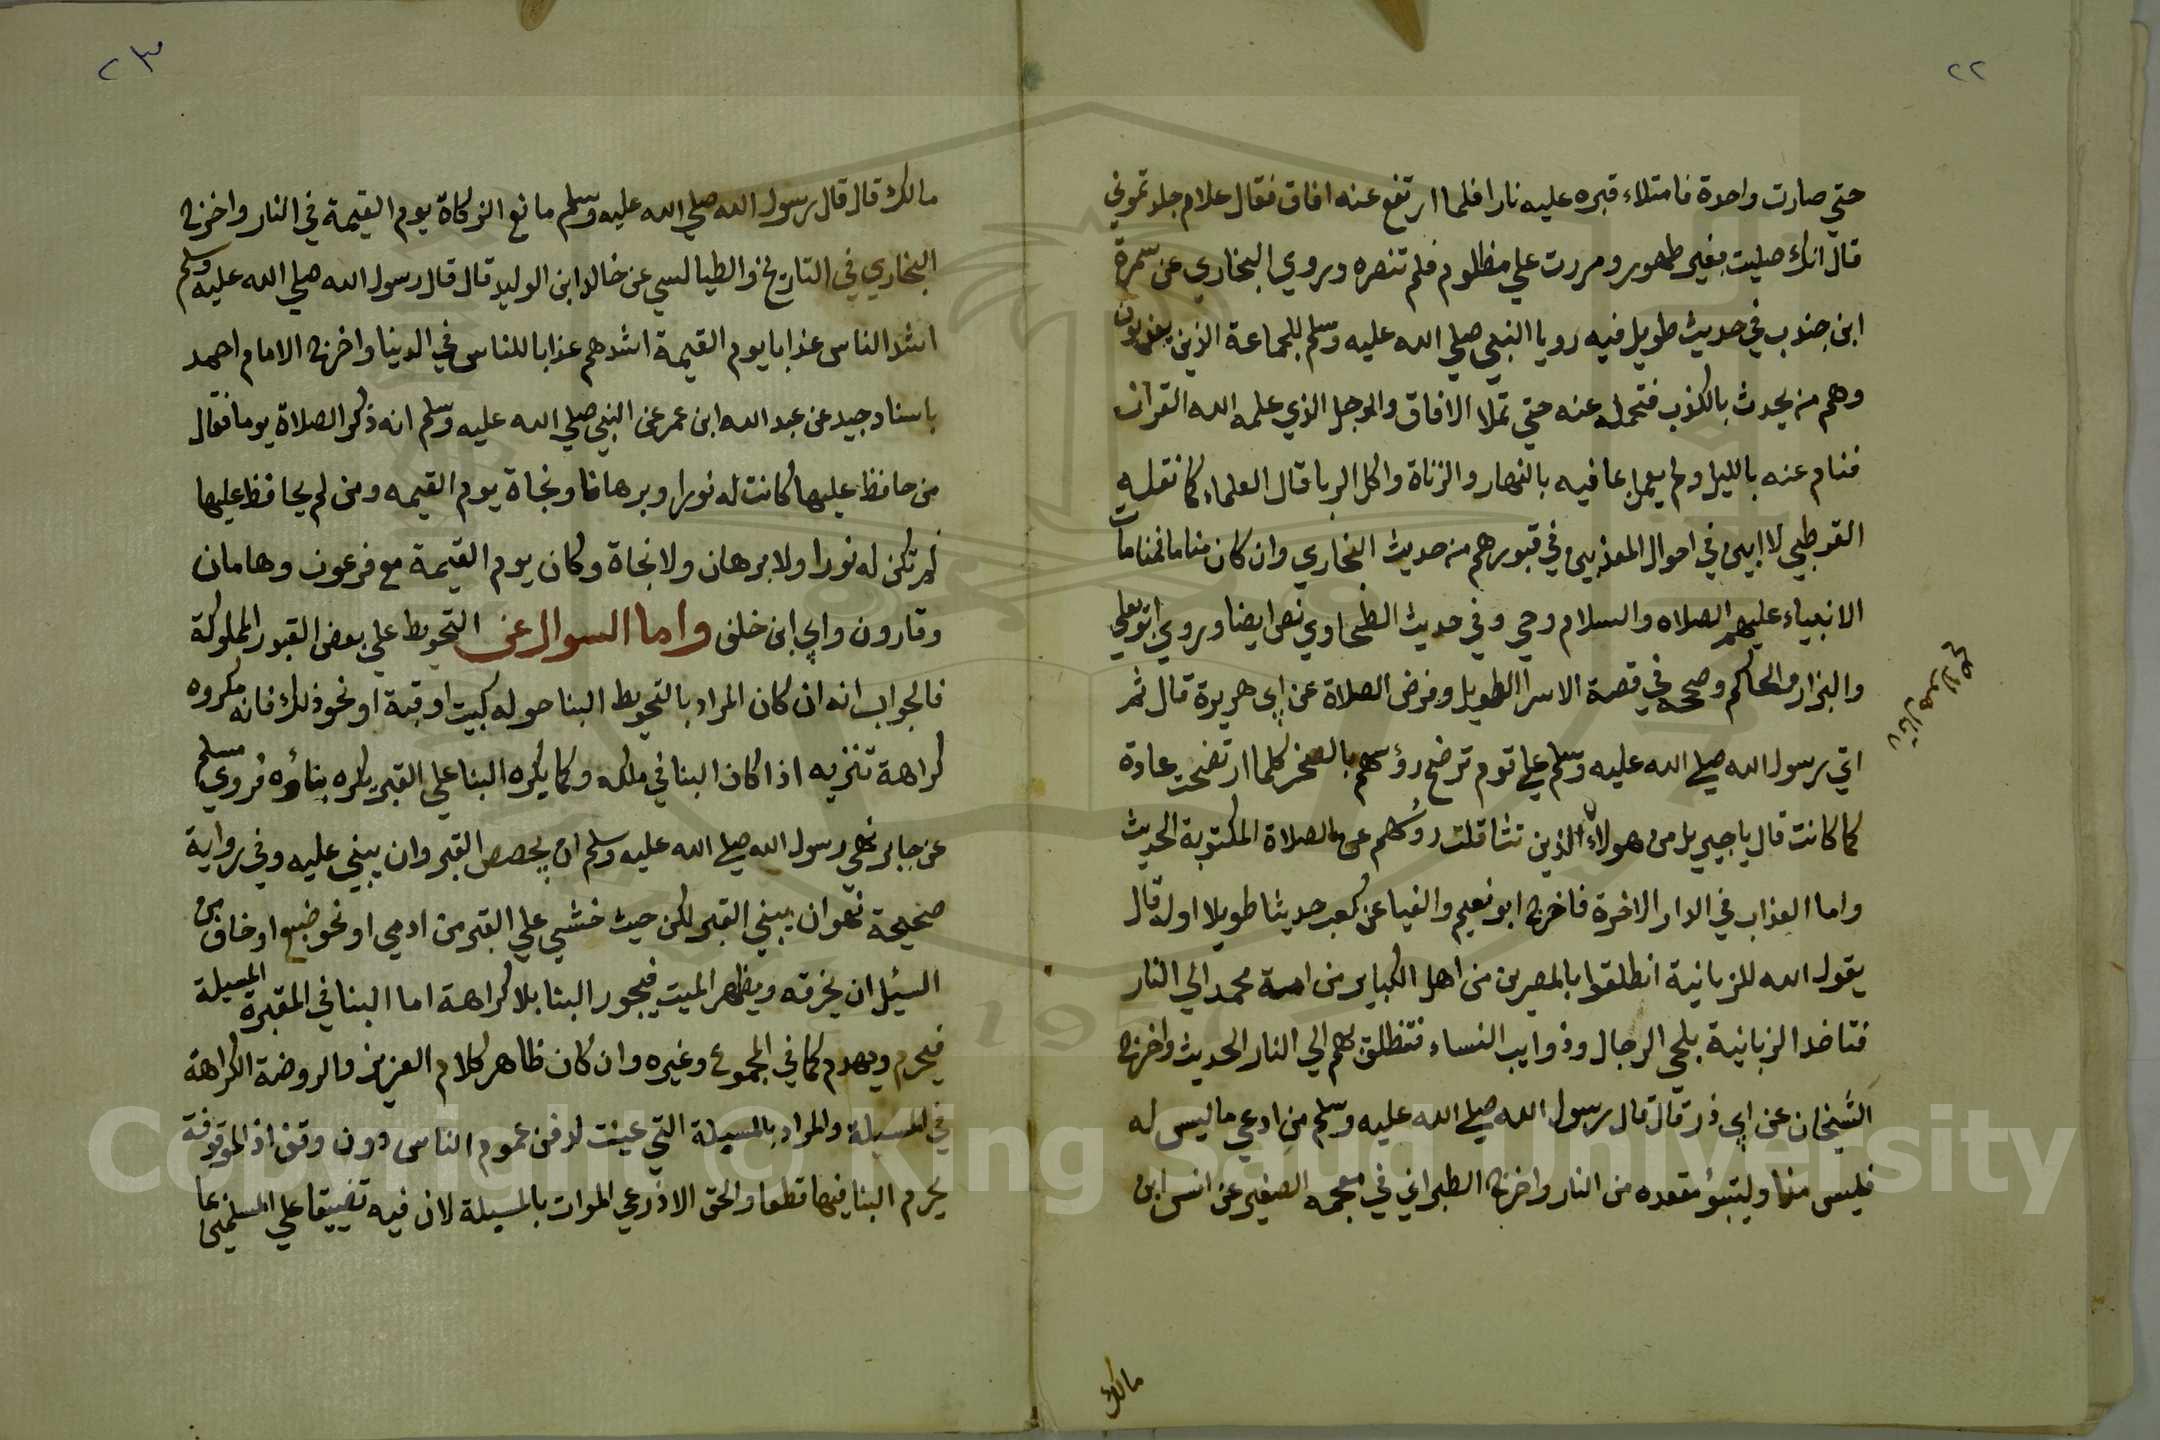 ٢٢
حتي صارت واحدة فامتلاء قبره عليه نارا فلما ارتفع عنه افاق فقال علام جلدتموني
قال انك صليت بغير طهور ومررت علي مظلوم فلم تنصره وروي البخاري عن سمرة
ابن جندب في حديث طويل فيه رويا النبي صلي الله عليه وسلم للجماعة الذين يعذبون
وهم من يحدث بالكذب فتحمل عنه حتي تملا الافاق والرجل الذي علمه الله القران
فنام عنه بالليل ولم يعمل بما فيه بالنهار والزناة واكل الربا قال العلماء كما نقله
القرطبي لا ابين في احوال المعذبين في قبورهم من حديث البخاري وان كان مناما فمنامات
الانبياء عليهم الصلاه والسلام وحي وفي حديث الطحاوي نص ايضا وروي ابو يعلي
والبزار والحاكم وصححه في قصة الاسرا الطويل وفرض الصلاة عن ابي هريرة قال ثم
اتي رسول الله صلي الله عليه وسلم علي قوم ترضخ رؤسهم بالصخر كلما ارتضخت عادة
كما كانت قال يا جبريل من هولاء الذين تثاقلت روسهم عن الصلاة المكتوبة الحديث
واما العذاب في الدار الاخرة فاخرج ابو نعيم والضيا عن كعب حديثا طويلا اوله قال
يقول الله للزبانية انطلقوا بالمصرين من اهل الكباير من امة محمد الي النار
فتاخذ الزبانية بلحي الرجال وذوايب النساء فتنطلق بهم الي النار الحديث واخرج
الشيخان عن ابي ذر قال قال رسول الله صلي الله عليه وسلم من ادعي ما ليس له
فليس منا وليتبؤ مقعده من النار واخرج الطبراني في معجمه الصغير عن انس ابن
مالك
٢٣
مالك قال قال رسول الله صلي الله عليه وسلم مانع الزكاة يوم القيمة في النار واخرج
البخاري في التاريخ والطيالسي عن خالد ابن الوليد قال قال رسول الله صلي الله عليه وسلم
اشد الناس عذابا يوم القيمة اشدهم عذابا للناس في الدينا واخرج الامام احمد
باسناد جيد عن عبد الله ابن عمر عن النبي صلي الله عليه وسلم انه ذكر الصلاة يوما فقال
من حافظ عليها كانت له نورا وبرهانا ونجاة يوم القيمه ومن لم يحافظ عليها
لم تكن له نورا ولا برهان ولا نجاة وكان يوم القيمة مع فرعون وهامان
وقارون وابي ابن خلف واما السوال عن التحويط علي بعض القبور المملوكة
فالجواب انه ان كان المراد بالتحويط البنا حوله كبيت او قبة او نحو ذلك فانه مكروه
كراهة تنزيه اذا كان البنا في ملكه وكما يكره البنا علي القبر يكره بناؤه فروي مسلم
عن جابر نهي رسول الله صلي الله عليه وسلم ان يجصص القبر وان يبني عليه وفي رواية
صحيحة نهو ان يبني القبر لكن حيث خشي علي القبر من ادمي او نحو ضبع او خاف من
السيل ان يخرقه ويظهر الميت فيجوز البنا بلا كراهة اما البنا في المقبرة المسبلة
فيحرم ويهدم كما في المجموع وغيره وان كان ظاهر كلام العزيز والروضة الكراهة
في المسبلة والمراد بالمسبلة التي عينت لدفن عموم الناس دون وقف اذ الموقوفة
يحرم البنا فيها قطعا والحق الاذرعي الموات بالمسبلة لان فيه تضييقا علي المسلمين بما
Copyright © King Saud University